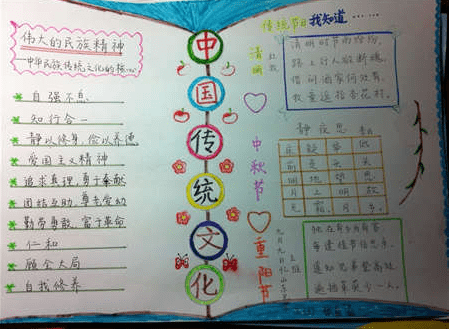 伟大的民族精神
—中华民族传统文化的核心
自强不息
知行合一
静以修身,俭以养德
爱国主义精神
追求真理,勇于奉献
团结互助,尊老爱幼
勤劳勇敢,富于革命
仁和
顾全大局
自我修养
中
国
传
统
文
化
传统节日我知道……
清明
杜牧
清明时节雨纷纷,
路上行人欲断魂。
借问酒家何处有,
牧童遥指杏花村。
中秋节
静夜思
李白
床 疑 举 低
前 是 头 头
明 地 望 思
月 上 明 故
光 霜 月 乡
重阳节
九月九日忆山东兄弟
王维
独在异乡为异客,
每逢佳节倍思亲。
遥知兄弟登高处,
遍插茱萸少一人。